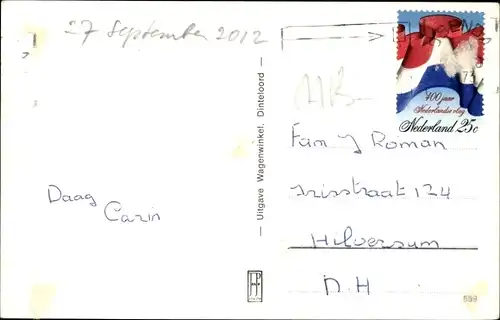 27 September 2012
73
400 jaar
Nederlandse vlag
Nederland 25c
Fam J Roman
Irisstraat 124
Hilversum
N.H
Daag
Carin
— Uitgave Wagenwinkel, Dinteloord —